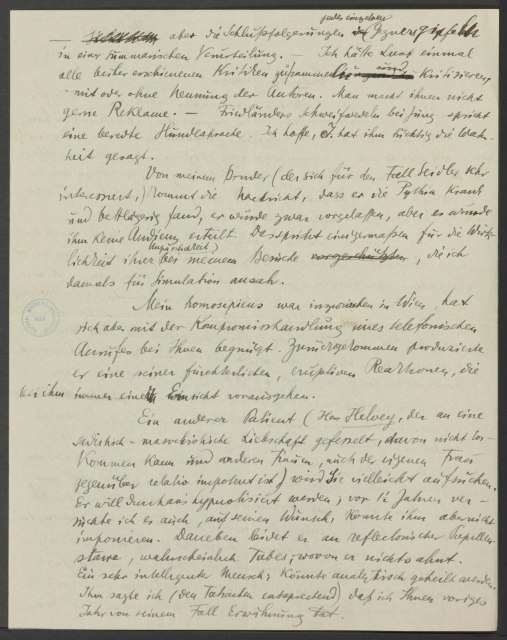 jedes einzelnen
— aber die Schlußfolgerungen Gegners gipfeln
in einer summarischen Verurteilung. — Ich hätte Lust einmal
alle bisher erschienenen Kritiken zusammen und Kritisieren,
– mit oder ohne Nennung der Autoren. Man macht ihnen nicht
gerne Reklame. — Friedländers Schweifwedeln bei Jung spricht
eine beredte Hundesprache. Ich hoffe, J. hat ihm tüchtig die Wahr-
heit gesagt.
Von meinem Bruder (der sich für den Fall Seidler sehr
interessiert,) kommt die Nachricht, dass er die Pythia krank
und bettlägerig fand, er wurde zwar vorgelassen, aber es wurde
ihm keine Audienz erteilt. Das spricht einigermaßen für die Wirk-
Unpässlichkeit)
lichkeit ihrer bei meinem Besuche , die ich
damals für Simulation ansah.
Mein homosexueller war inzwischen in Wien, hat
sich aber mit der Kompromisshandlung eines telefonischen
Anrufes bei Ihnen begnügt. Zurückgekommen produzierte
er eine seiner fürchterlichen, eruptiven Reaktionen, die
bei ihm immer einer Einsicht vorausgehen.
Ein anderer Patient (Herr Helvey, der an eine
sadistisch-masochistische Liebschaft gefesselt, davon nicht los-
kommen kann und anderen Frauen, auch der eigenen Frau
gegenüber relativ impotent ist) wird Sie vielleicht aufsuchen.
Er will durchaus hypnotisiert werden; vor 1½ Jahren ver-
suchte ich es auch, auf seinen Wunsch, konnte ihm aber nicht
imponieren. Daneben leidet er an reflectorischer Pupillen-
starre, wahrscheinlich Tabes, wovon er nichts ahnt.
Ein sehr intelligenter Mensch; könnte analytisch geheilt werden.
Ihm sagte ich (den Tatsachen entsprechend) daß ich Ihnen voriges
Jahr von seinem Fall Erwähnung tat.